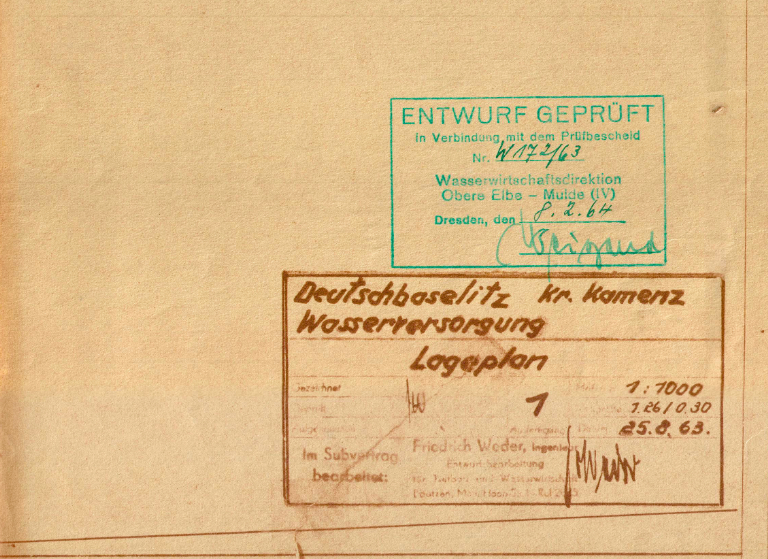 ENTWURF GEPRÜFT
in Verbindung mit dem Prüfbescheid
Nr. W 172/63
Wasserwirtschaftsdirektion
Obere Elbe – Mulde (IV)
Dresden, den 8.2.64
Deutschbaselitz Kr. Kamenz
Wasserversorgung
Lageplan
Gezeichnet
1
1:1000
1.26 / 0.30
Datum 25.8.63.
Im Subvertrag
bearbeitet:
Friedrich Weder, Ingenieur
Entwurfbearbeitung
für Tiefbau und Wasserwirtschaft